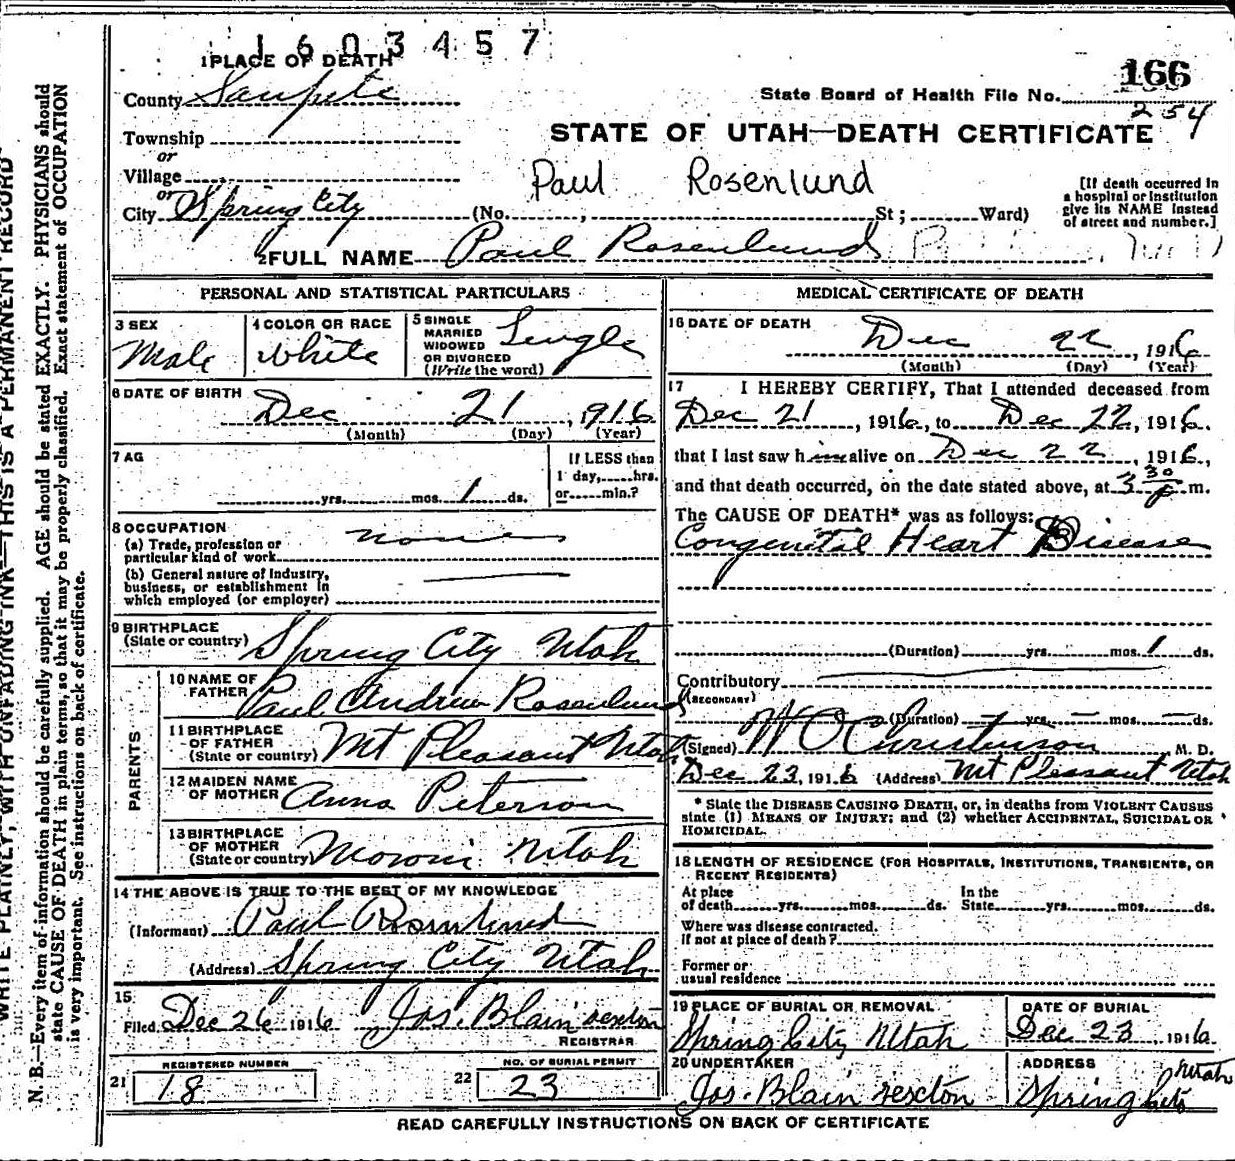 1603457
1 PLACE OF DEATH
County Sanpete
Township
or
Village
or
City Spring City
166
State Board of Health File No.
254
STATE OF UTAH—DEATH CERTIFICATE
Paul Rosenlund
(No. ; St ; Ward)
[If death occurred in
a hospital or institution
give its NAME instead
of street and number.]
2 FULL NAME Paul Rosenlund
PERSONAL AND STATISTICAL PARTICULARS
3 SEX
Male
4 COLOR OR RACE
White
5 SINGLE
MARRIED
WIDOWED
OR DIVORCED
(Write the word)
Single
6 DATE OF BIRTH
Dec 21, 1916
(Month) (Day) (Year)
7 AG
yrs. mos. 1 ds.
If LESS than
1 day, hrs.
or min.?
8 OCCUPATION
(a) Trade, profession or
particular kind of work None
(b) General nature of industry,
business, or establishment in
which employed (or employer)
9 BIRTHPLACE
(State or country) Spring City Utah
PARENTS
10 NAME OF
FATHER Paul Andrew Rosenlund
11 BIRTHPLACE
OF FATHER
(State or country) Mt Pleasant Utah
12 MAIDEN NAME
OF MOTHER Anna Peterson
13 BIRTHPLACE
OF MOTHER
(State or country) Moroni Utah
14 THE ABOVE IS TRUE TO THE BEST OF MY KNOWLEDGE
(Informant) Paul Rosenlund
(Address) Spring City Utah
15
Filed Dec 26 1916 Jos. Blain sexton
REGISTRAR
REGISTERED NUMBER
21 18
NO. OF BURIAL PERMIT
22 23
MEDICAL CERTIFICATE OF DEATH
16 DATE OF DEATH
Dec 22, 1916
(Month) (Day) (Year)
17 I HEREBY CERTIFY, That I attended deceased from
Dec 21, 1916, to Dec 22, 1916.
that I last saw h im alive on Dec 22, 1916,
and that death occurred, on the date stated above, at 3 30 p m.
The CAUSE OF DEATH* was as follows:
Congenital Heart Disease
(Duration) yrs. mos. 1 ds.
Contributory
(SECONDARY)
(Duration) yrs. mos. ds.
(Signed) W O Christenson M. D.
Dec 23, 1916 (Address) Mt Pleasant Utah
* State the DISEASE CAUSING DEATH, or, in deaths from VIOLENT CAUSES
state (1) MEANS OF INJURY; and (2) whether ACCIDENTAL, SUICIDAL OR
HOMICIDAL.
18 LENGTH OF RESIDENCE (FOR HOSPITALS, INSTITUTIONS, TRANSIENTS, OR
RECENT RESIDENTS)
At place
of death yrs. mos. ds.
In the
State yrs. mos. ds.
Where was disease contracted.
If not at place of death?
Former or
usual residence
19 PLACE OF BURIAL OR REMOVAL
Spring City Utah
DATE OF BURIAL
Dec 23, 1916
20 UNDERTAKER
Jos. Blain sexton
ADDRESS
Utah
Spring City
READ CAREFULLY INSTRUCTIONS ON BACK OF CERTIFICATE
WRITE PLAINLY, WITH UNFADING INK—THIS IS A PERMANENT RECORD
N. B.—Every item of information should be carefully supplied. AGE should be stated EXACTLY. PHYSICIANS should
state CAUSE OF DEATH in plain terms, so that it may be properly classified. Exact statement of OCCUPATION
is very important. See instructions on back of certificate.